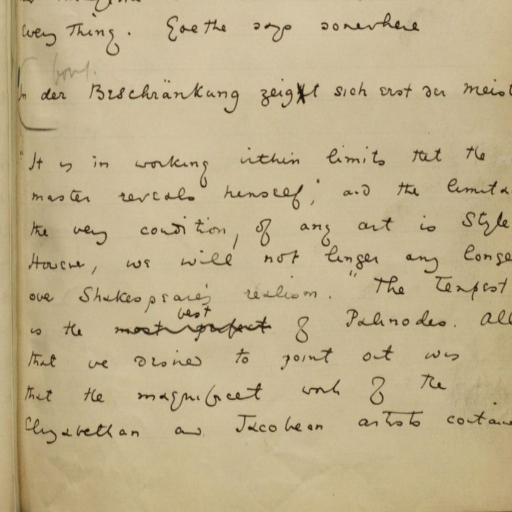 every thing. Goethe says somewhere
In der Beschränkung zeigt sich erst der Meist
"It is in working within limits that the
master reveals himself", and the limita
the very condition, of any art is Style
However, we will not linger any longe
over Shakespeare's realism. "The Tempest
is the best of Palinodes. All
that we desired to point out was
that the magnificent work of the
Elizabethan and Jacobean artists contain